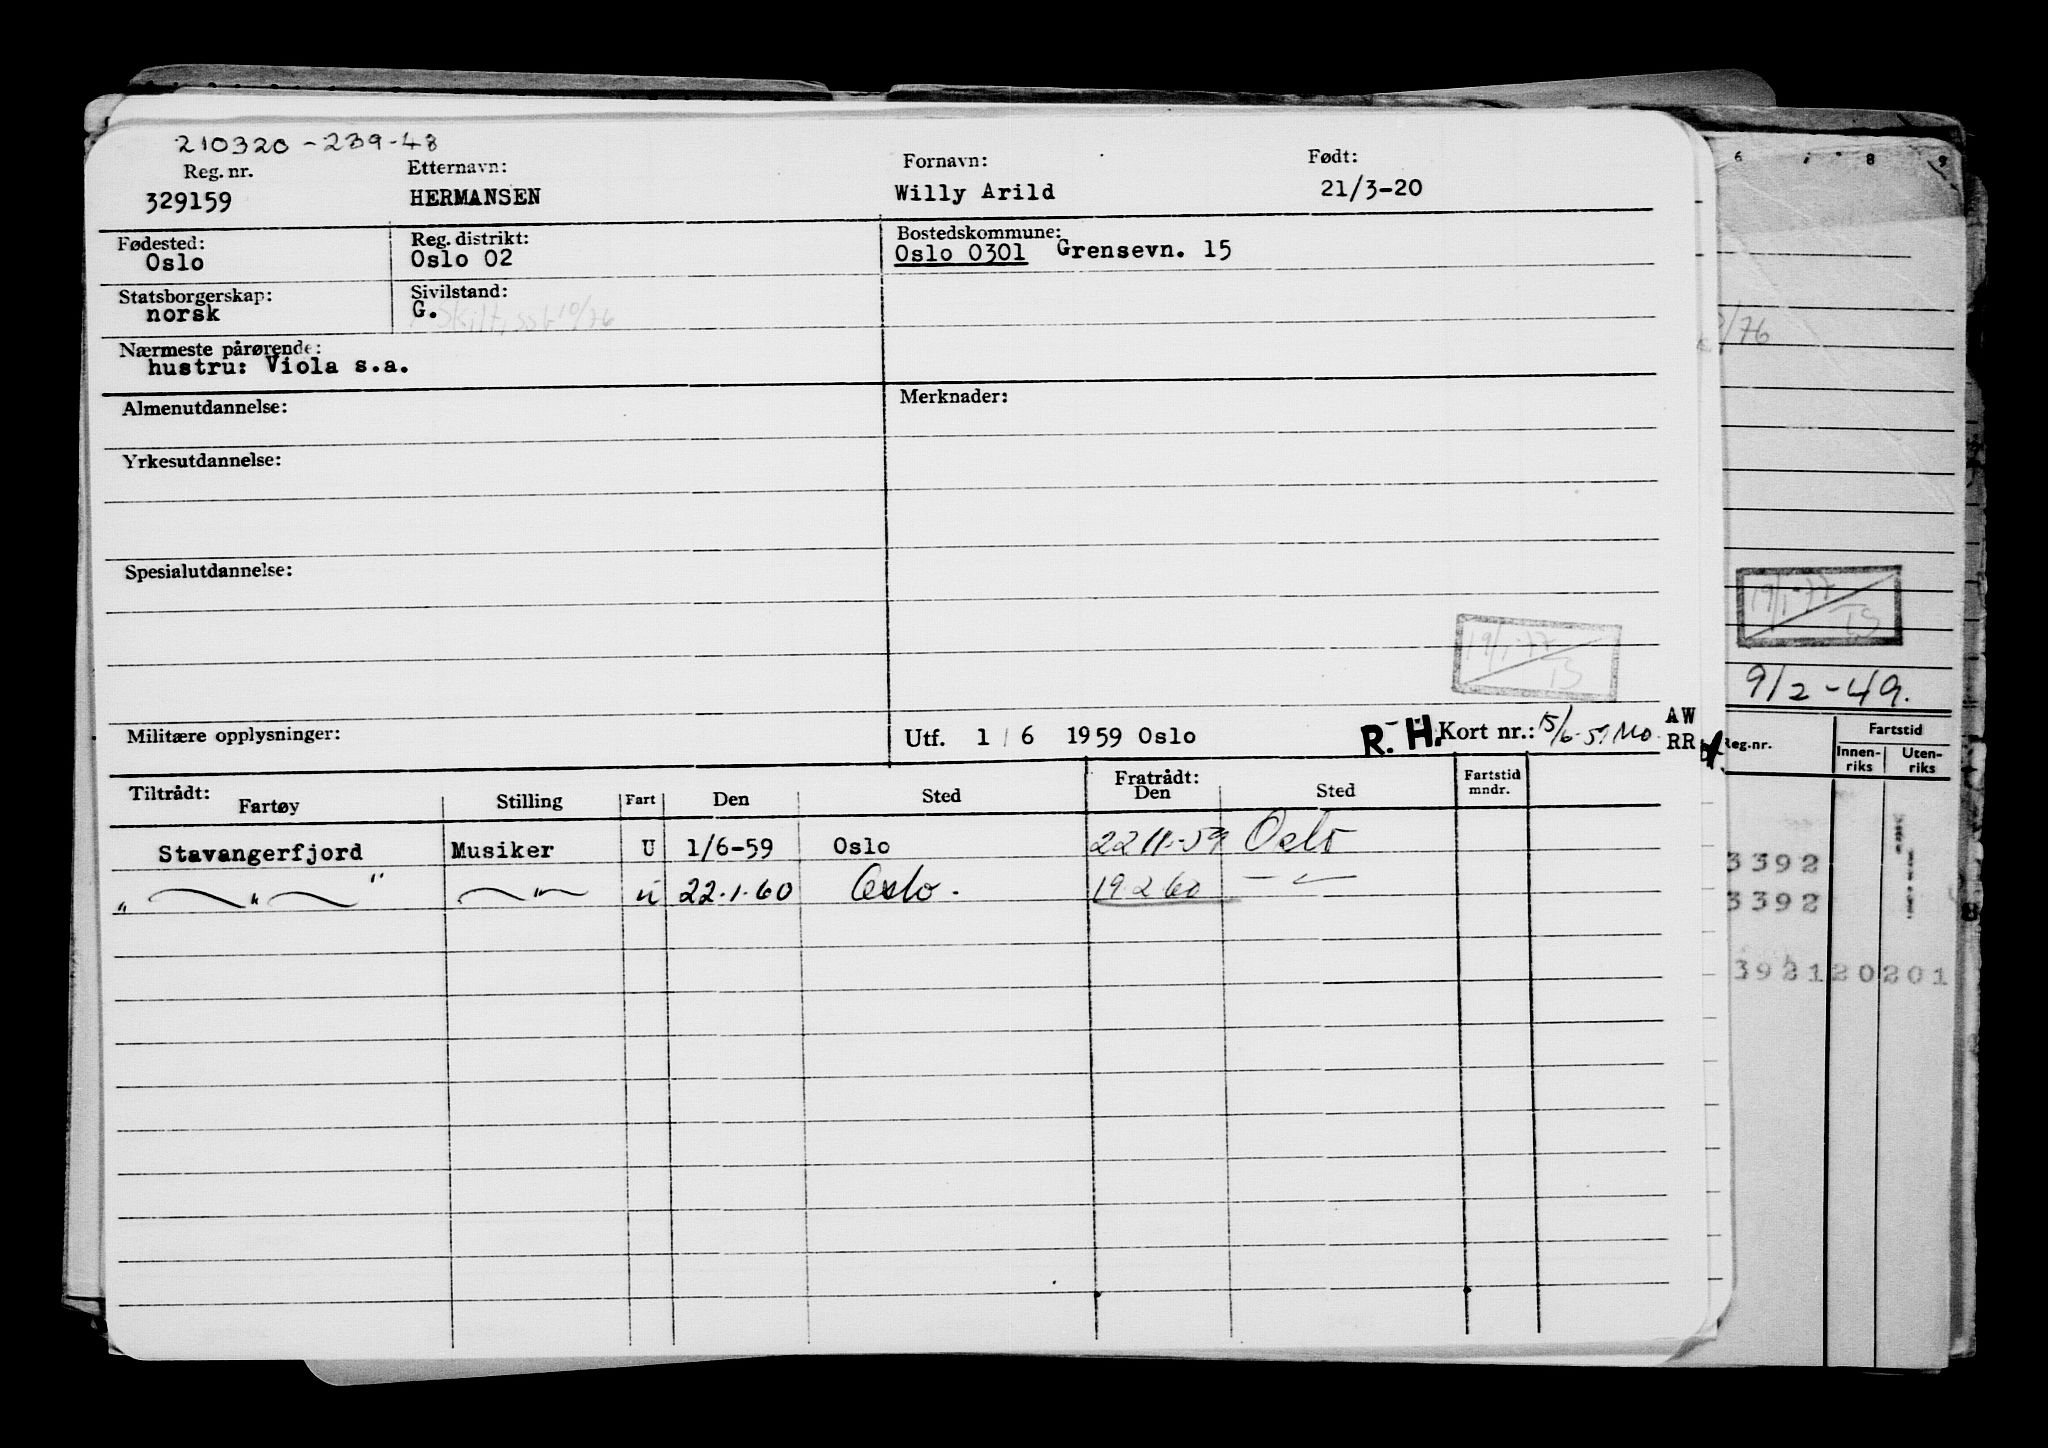 210320-239-48
Reg. nr. Etternavn: Fornavn: Født:
329159 HERMANSEN Willy Arild 21/3-20
Fødested: Reg. distrikt: Bostedskommune:
Oslo Oslo 02 Oslo 0301 Grensevn. 15
Statsborgerskap: Sivilstand:
norsk G. Skilt,
Nærmeste pårørende:
hustru: Viola s.a.
Almenutdannelse: Merknader:
Yrkesutdannelse:
Spesialutdannelse:
19/1-77
TS
Militære opplysninger: Utf. 1/6 1959 Oslo R.H. Kort nr.: 15/6-59 Mo. AW
RR
Tiltrådt: Fratrådt: Fartstid
Fartøy Stilling Fart Den Sted Den Sted mndr.
Stavangerfjord Musiker U 1/6-59 Oslo 22 11-59 Oslo
" " " " u 22.1.60 Oslo. 19.2.60 — " —
6 7 8 9
/76
19/1-77
TS
9/2-49.
Reg.nr. Fartstid
Innen-
riks Uten-
riks
3392
3392
392120201